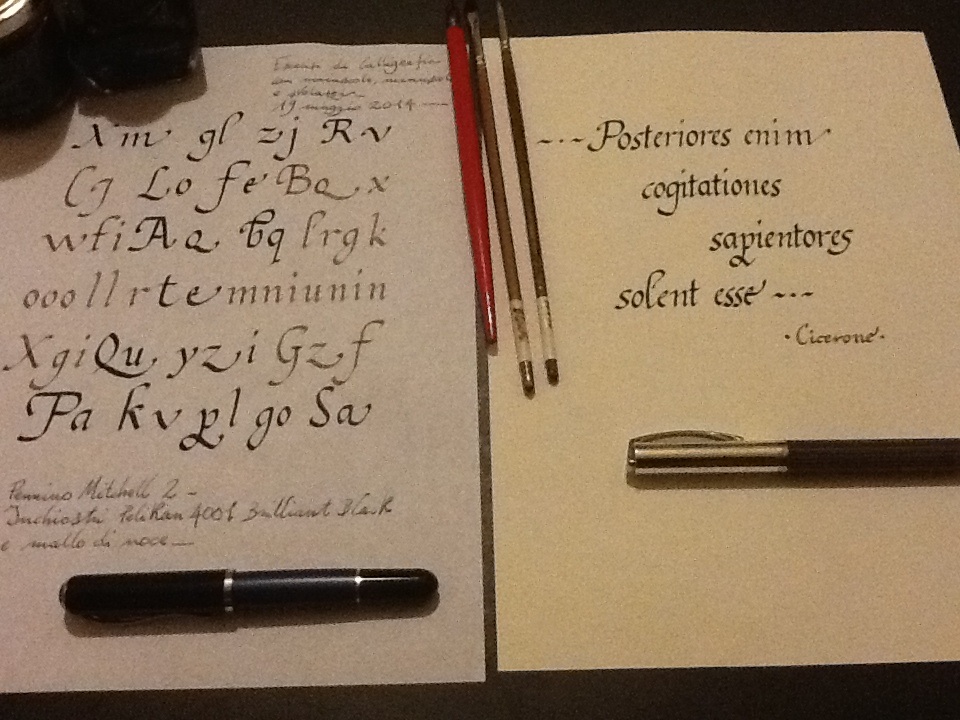 Esercizi di Calligrafia
con maiuscole, minuscole
e
19 maggio 2014
Xm gl zj R v
Lo fe BQ x
wfi AQ bq lrgk
ooo ll r te mniunin
XgiQu yz i Gz f
Pa kv pl go Sa
Pennino Mitchell 2 -
Inchiostri Pelikan 4001 Brilliant Black
e mallo di noce
--- Posteriores enim
cogitationes
sapientores
solent esse ---
· Cicerone ·